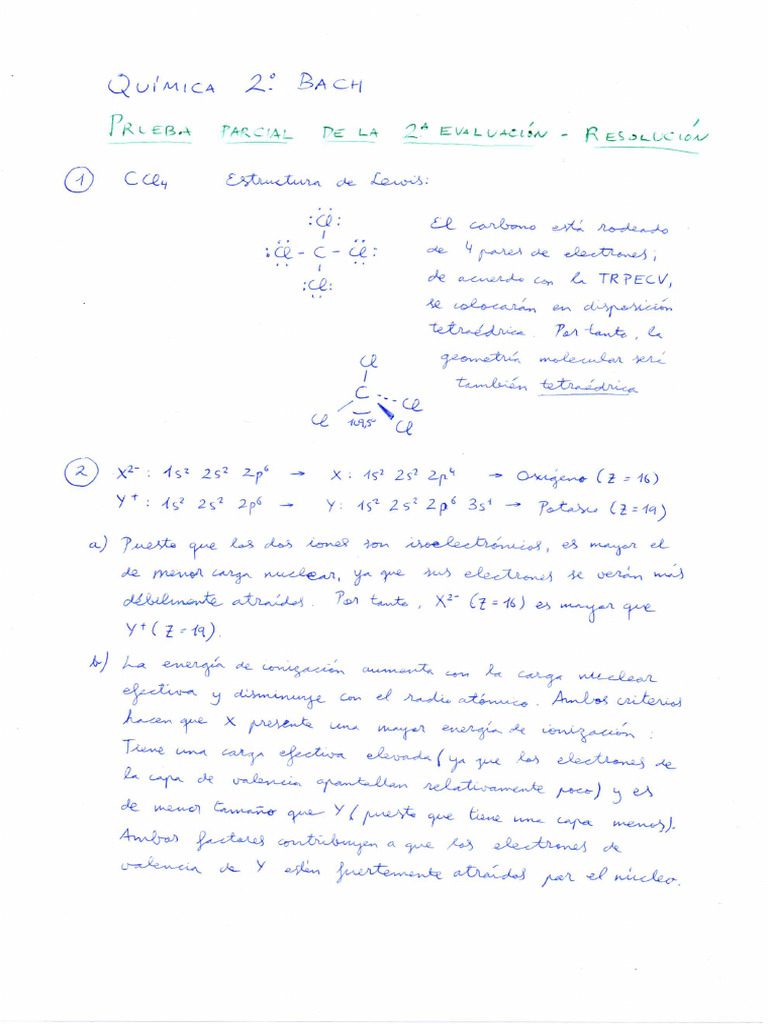 QUÍMICA 2º BACH
PRUEBA PARCIAL DE LA 2ª EVALUACIÓN - RESOLUCIÓN
1 CCl4 Estructura de Lewis:
:Cl:
:Cl - C - Cl:
:Cl:
El carbono está rodeado
de 4 pares de electrones;
de acuerdo con la TRPECV,
se colocarán en disposición
tetraédrica. Por tanto, la
geometría molecular será
también tetraédrica
Cl
C
Cl
Cl 109,5º Cl
2 X²⁻: 1s² 2s² 2p⁶ → X: 1s² 2s² 2p⁴ → Oxígeno (Z = 16)
Y⁺: 1s² 2s² 2p⁶ → Y: 1s² 2s² 2p⁶ 3s¹ → Potasio (Z = 19)
a) Puesto que los dos iones son isoelectrónicos, es mayor el
de menor carga nuclear, ya que sus electrones se verán más
débilmente atraídos. Por tanto, X²⁻ (Z = 16) es mayor que
Y⁺ (Z = 19).
b) La energía de ionización aumenta con la carga nuclear
efectiva y disminuye con el radio atómico. Ambos criterios
hacen que X presente una mayor energía de ionización:
Tiene una carga efectiva elevada (ya que los electrones de
la capa de valencia apantallan relativamente poco) y es
de menor tamaño que Y (puesto que tiene una capa menos).
Ambos factores contribuyen a que los electrones de
valencia de Y estén fuertemente atraídos por el núcleo.